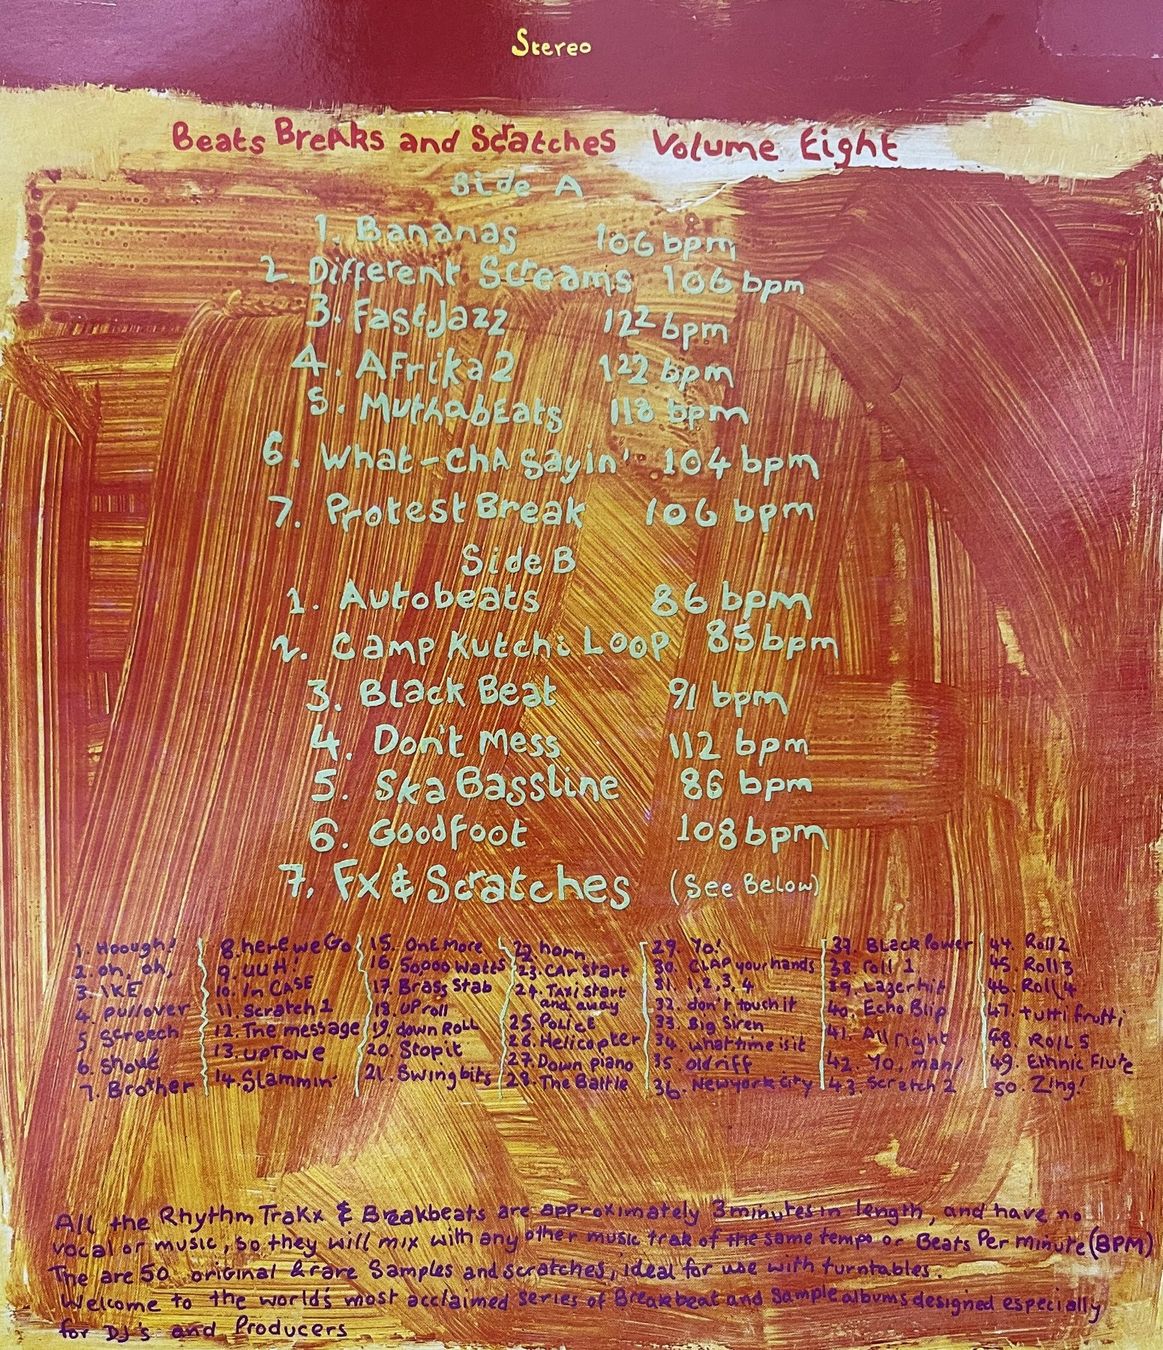 Stereo
Beats Breaks and Scratches Volume Eight
Side A
1. Bananas 106 bpm
2. Different Screams 106 bpm
3. Fast Jazz 122 bpm
4. Afrika 2 122 bpm
5. MuthabEats 118 bpm
6. What-chA Sayin' 104 bpm
7. Protest Break 106 bpm
Side B
1. Autobeats 86 bpm
2. Camp Kutchi Loop 85 bpm
3. Black Beat 91 bpm
4. Don't Mess 112 bpm
5. Ska Bassline 86 bpm
6. Goodfoot 108 bpm
7. Fx & Scratches (See Below)
1. Hoough!
2. oh, oh,
3. IKE
4. pullover
5. Screech
6. Shout
7. Brother
8. here we Go
9. UUH!
10. In CASE
11. Scratch 1
12. The message
13. UPTONE
14. Slammin'
15. OnE More
16. 50,000 Watts
17. Brass Stab
18. UP roll
19. down RoLL
20. Stop it
21. Swingbits
22 horn
23. CAr Start
24. Taxi Start
and away
25. PolicE
26. Helicopter
27. Down piano
28. The Battle
29. Yo!
30. CLAP your hands
31. 1, 2, 3, 4
32. don't touch it
33. Big Siren
34. what time is it
35. old riff
36. New york city
37. BLack Power
38. roll 1
39. Lazer hit
40. Echo Blip
41. All right
42. Yo, man!
43. Scratch 2
44. Roll 2
45. Roll 3
46. Roll 4
47. tutti frutti
48. RoLL 5
49. Ethnic Flute
50. Zing!
All the Rhythm TraKx & Breakbeats are approximately 3 minutes in length, and have no
vocal or music, so they will mix with any other music trak of the same tempo or Beats Per minute (BPM)
The are 50 original & rare Samples and scratches, ideal for use with turntables.
Welcome to the world's most acclaimed series of Breakbeat and Sample albums designed especially
for DJ's and Producers